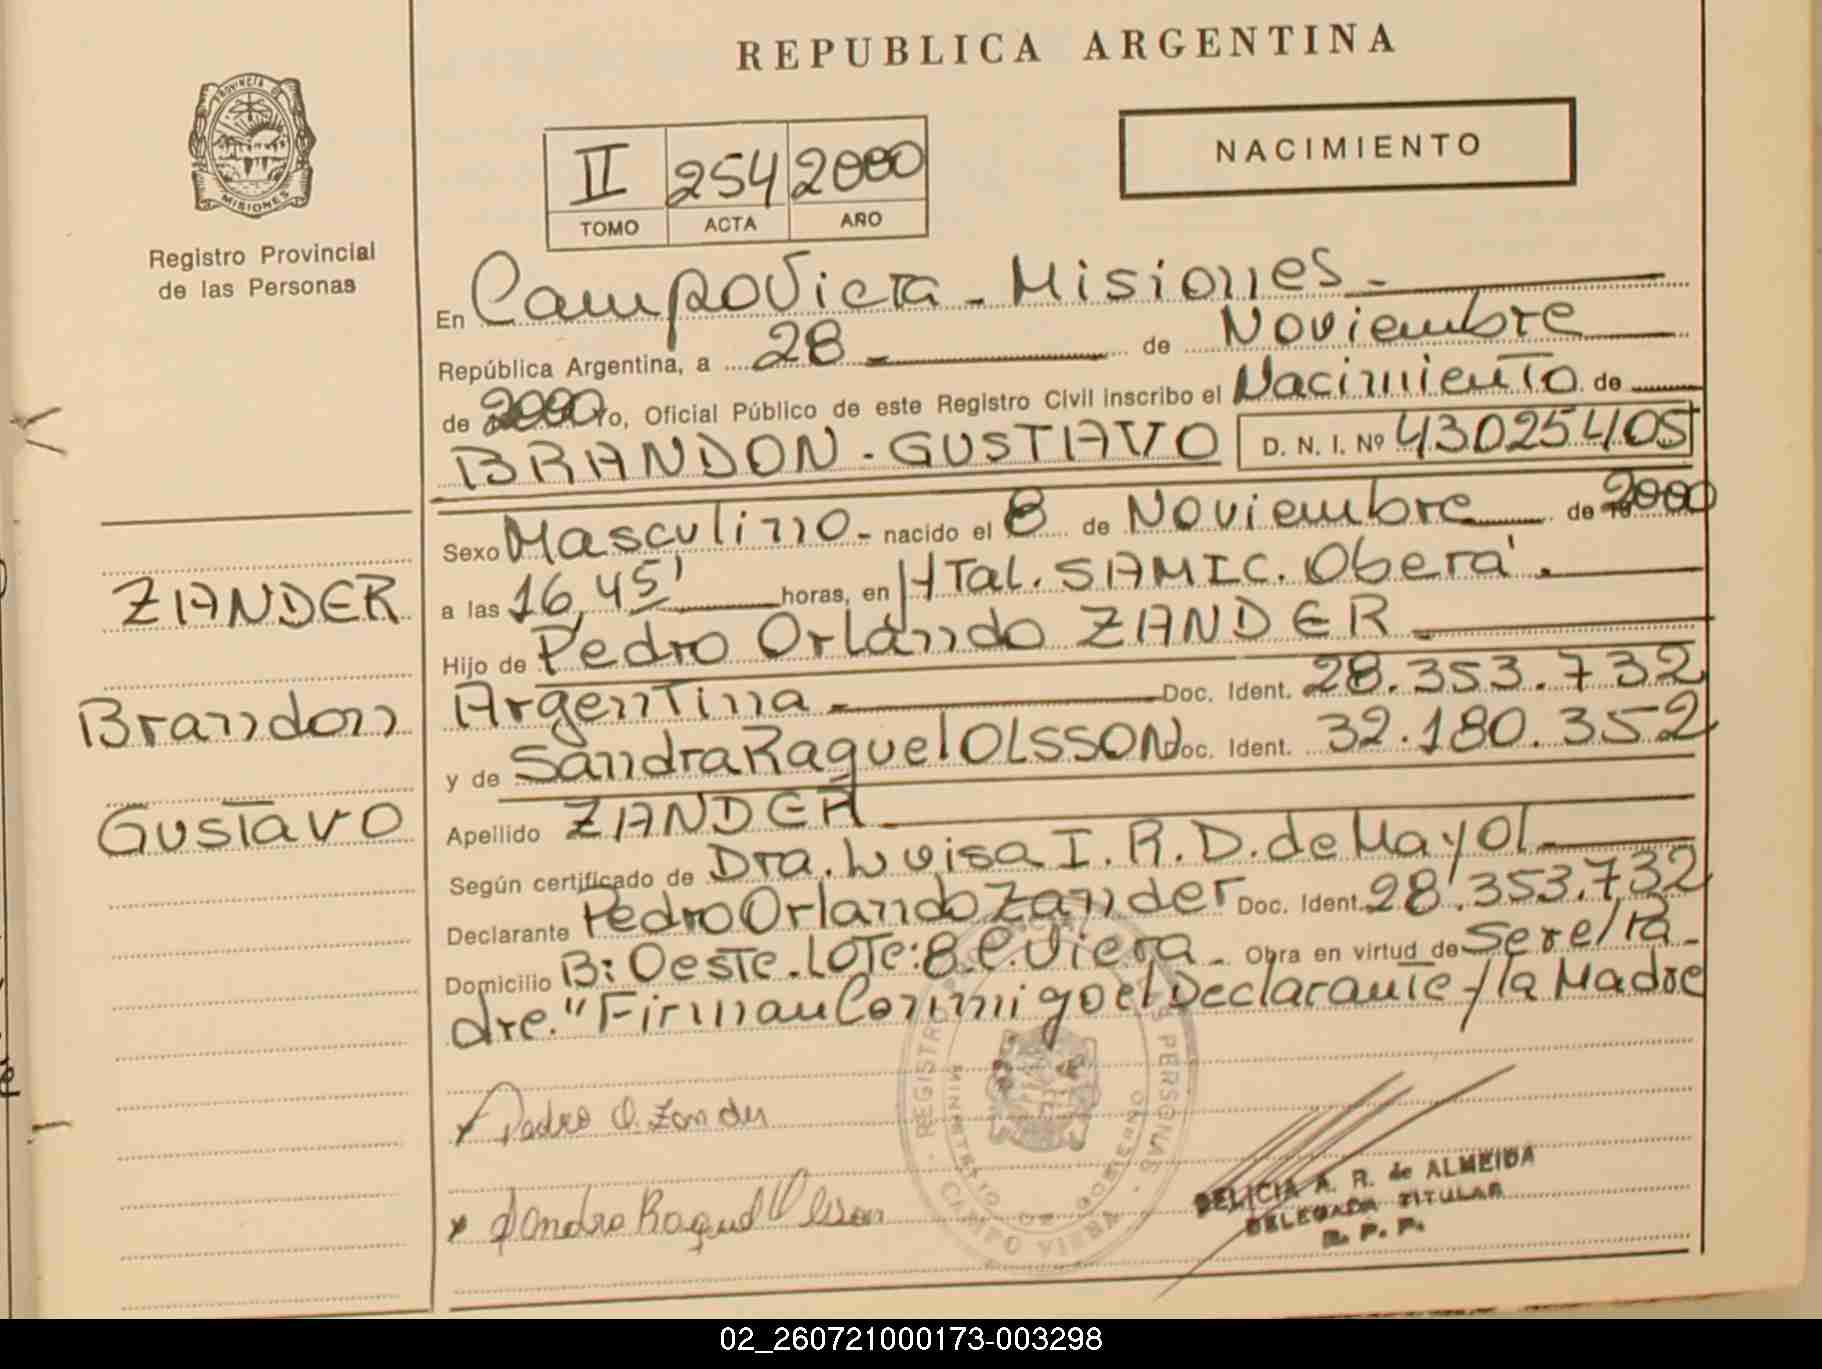 REPUBLICA ARGENTINA
PROVINCIA DE
MISIONES
Registro Provincial
de las Personas
II 254 2000
TOMO ACTA AÑO
NACIMIENTO
En CampoViera - Misiones -
República Argentina, a 28 - de Noviembre
de 2000 Yo, Oficial Público de este Registro Civil inscribo el Nacimiento de
BRANDON - GUSTAVO D. N. I. Nº 43025405
Sexo Masculino - nacido el 8 de Noviembre de 2000
a las 16,45' horas, en HTal. SAMIC. Oberá.
Hijo de Pedro Orlando ZANDER -
Argentina - Doc. Ident. 28.353.732
y de Sandra Raquel OLSSON Doc. Ident. 32.180.352
Apellido ZANDER -
Según certificado de Dra. Luisa I. R. D. de Mayol -
Declarante Pedro Orlando Zander Doc. Ident. 28.353.732
Domicilio B: Oeste. LOTE: 8. C. Viera - Obra en virtud de Sere/Pa-
dre." Firman Conmigo el Declarante y la Madre
ZANDER
Brandon
Gustavo
x Pedro O. Zander
x Sandra Raquel Olsson
REGISTRO PERSONAS
MINISTERIO DE GOBIERNO
CAMPO VIERA
DELICIA A. R. de ALMEIDA
DELEGADA TITULAR
R. P. P.
02_260721000173-003298